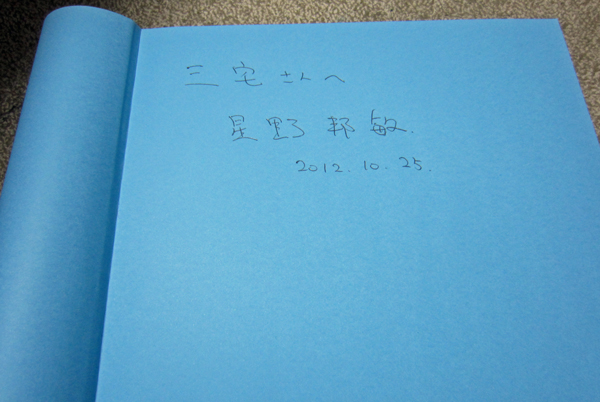 三宅さんへ
星野邦敏.
2012.10.25.